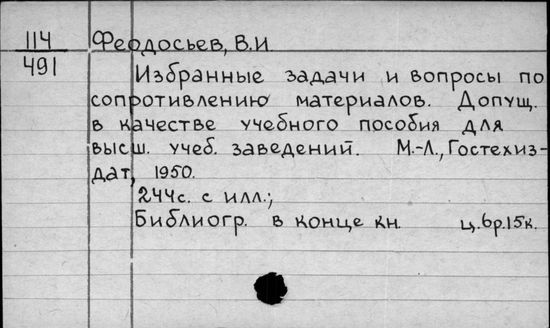 114
491
Феодосьев, В.И
Избранные задачи и вопросы по
сопротивлению материалов. Допущ.
в качестве учебного пособия для
высш. учеб. заведений. М.-Л., Гостехиз-
дат, 1950.
244с. с илл.;
Библиогр. в конце кн. ц. 6р.15к.